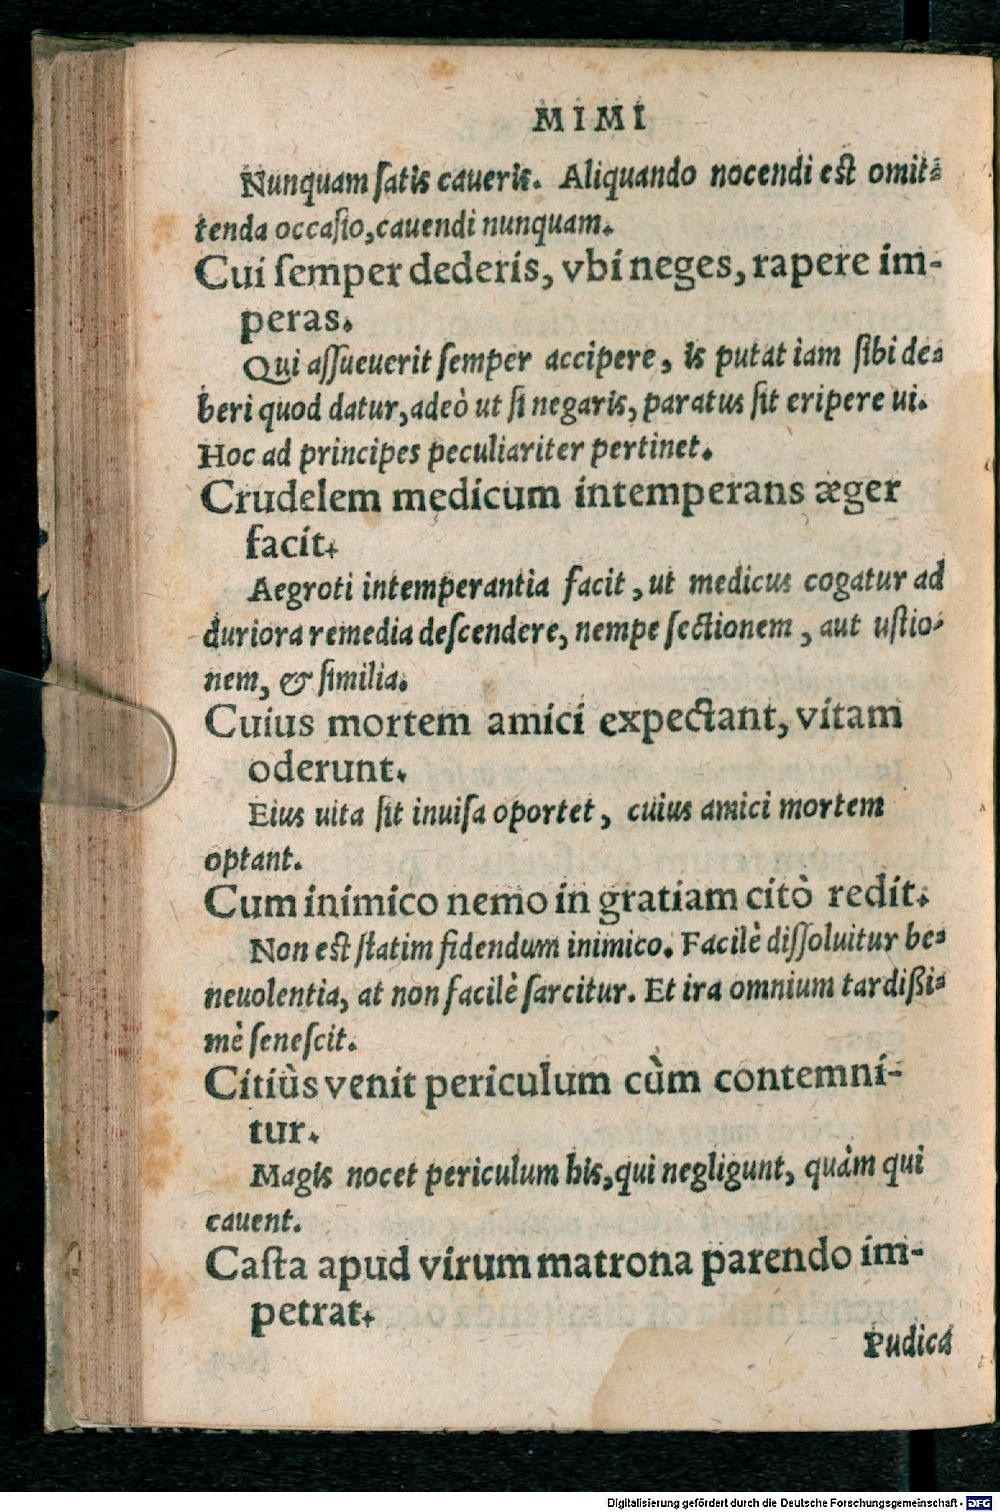 MIMI
Nunquam ſatis caueris. Aliquando nocendi est omit-
tenda occaſio, cauendi nunquam.
Cui ſemper dederis, vbi neges, rapere im-
peras.
Qui aſſueuerit ſemper accipere, is putat iam ſibi de-
beri quod datur, adeò ut ſi negaris, paratus ſit eripere ui.
Hoc ad principes peculiariter pertinet.
Crudelem medicum intemperans æger
facit.
Aegroti intemperantia facit, ut medicus cogatur ad
duriora remedia deſcendere, nempe ſectionem, aut uſtio-
nem, & ſimilia.
Cuius mortem amici expectant, vitam
oderunt.
Eius uita ſit inuiſa oportet, cuius amici mortem
optant.
Cum inimico nemo in gratiam citò redit.
Non est ſtatim fidendum inimico. Facilè diſſoluitur be-
neuolentia, at non facilè ſarcitur. Et ira omnium tardißi-
mè ſeneſcit.
Citiùs venit periculum cùm contemni-
tur.
Magis nocet periculum his, qui negligunt, quàm qui
cauent.
Caſta apud virum matrona parendo im-
petrat.
Pudica
Digitalisierung gefördert durch die Deutsche Forschungsgemeinschaft - DFG